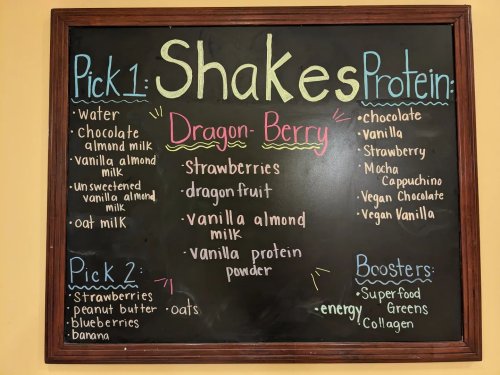 Shakes
Pick 1:
· Water
· Chocolate
almond milk
· vanilla almond
milk
· unsweetened
vanilla almond
milk
· oat milk
Dragon-Berry
· strawberries
· dragonfruit
· vanilla almond
milk
· vanilla protein
powder
Protein:
· chocolate
· vanilla
· Strawberry
· Mocha
Cappuchino
· Vegan Chocolate
· Vegan Vanilla
Pick 2:
· Strawberries
· peanut butter
· blueberries
· banana
· oats
Boosters:
· Superfood
Greens
· energy
· Collagen